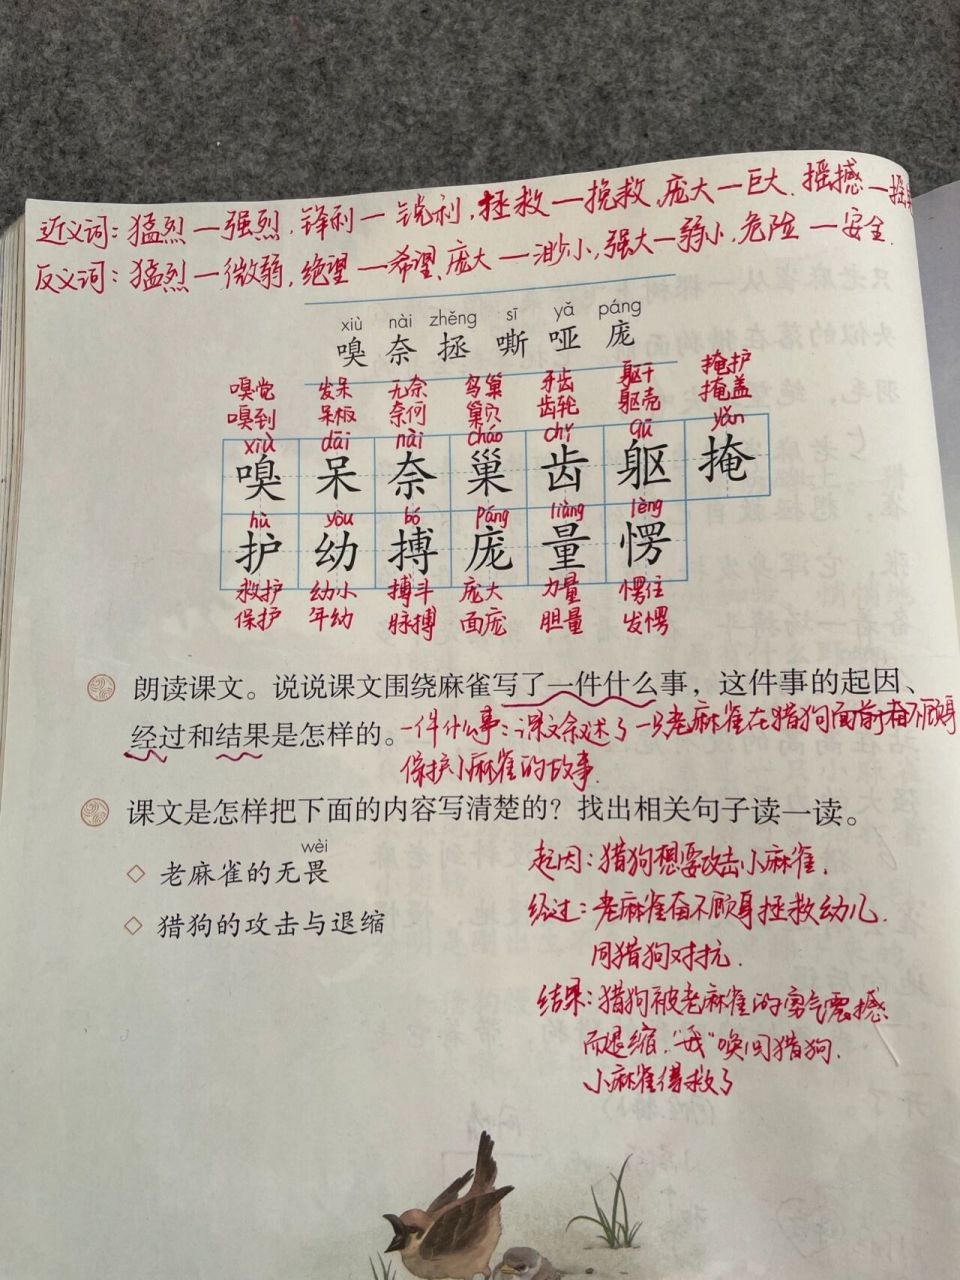 近义词：猛烈—强烈，锋利—锐利，拯救—挽救，庞大—巨大，摇撼—摇
反义词：猛烈—微弱，绝望—希望，庞大—渺小，强大—弱小，危险—安全．
xiù nài zhěng sī yǎ páng
嗅 奈 拯 嘶 哑 庞
嗅觉 发呆 无奈 鸟巢 牙齿 躯干 掩护
嗅到 呆板 奈何 巢穴 齿轮 躯壳 掩盖
xiù dāi nài cháo chǐ qū yǎn
嗅 呆 奈 巢 齿 躯 掩
hù yòu bó páng liàng lèng
护 幼 搏 庞 量 愣
救护 幼小 搏斗 庞大 力量 愣住
保护 年幼 脉搏 面庞 胆量 发愣
朗读课文。说说课文围绕麻雀写了一件什么事，这件事的起因、
经过和结果是怎样的。
一件什么事：课文叙述了一只老麻雀在猎狗面前奋不顾身
保护小麻雀的故事．
课文是怎样把下面的内容写清楚的？找出相关句子读一读。
wèi
◇ 老麻雀的无畏
◇ 猎狗的攻击与退缩
起因：猎狗想要攻击小麻雀．
经过：老麻雀奋不顾身拯救幼儿．
同猎狗对抗．
结果：猎狗被老麻雀的勇气震撼
而退缩．“我”唤回猎狗．
小麻雀得救了